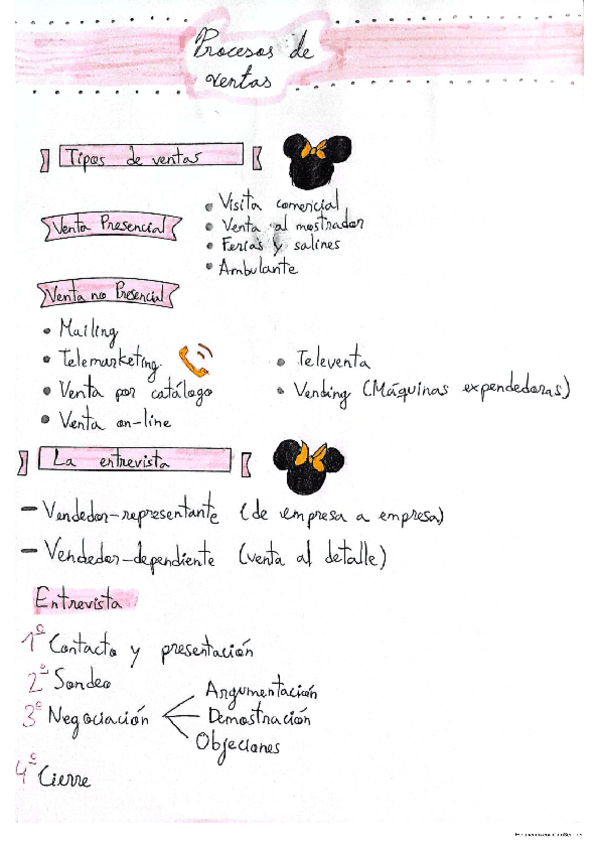 Procesos de
ventas
Tipos de ventas
Venta Presencial
• Visita comercial
• Venta al mostrador
• Ferias y salines
• Ambulante
Venta no Presencial
• Mailing
• Telemarketing
• Venta por catálogo
• Venta on-line
• Televenta
• Vending (Máquinas expendedoras)
La entrevista
- Vendedor-representante (de empresa a empresa)
- Vendedor-dependiente (venta al detalle)
Entrevista
1º Contacto y presentación
2º Sondeo
3º Negociación
Argumentación
Demostración
Objeciones
4º Cierre